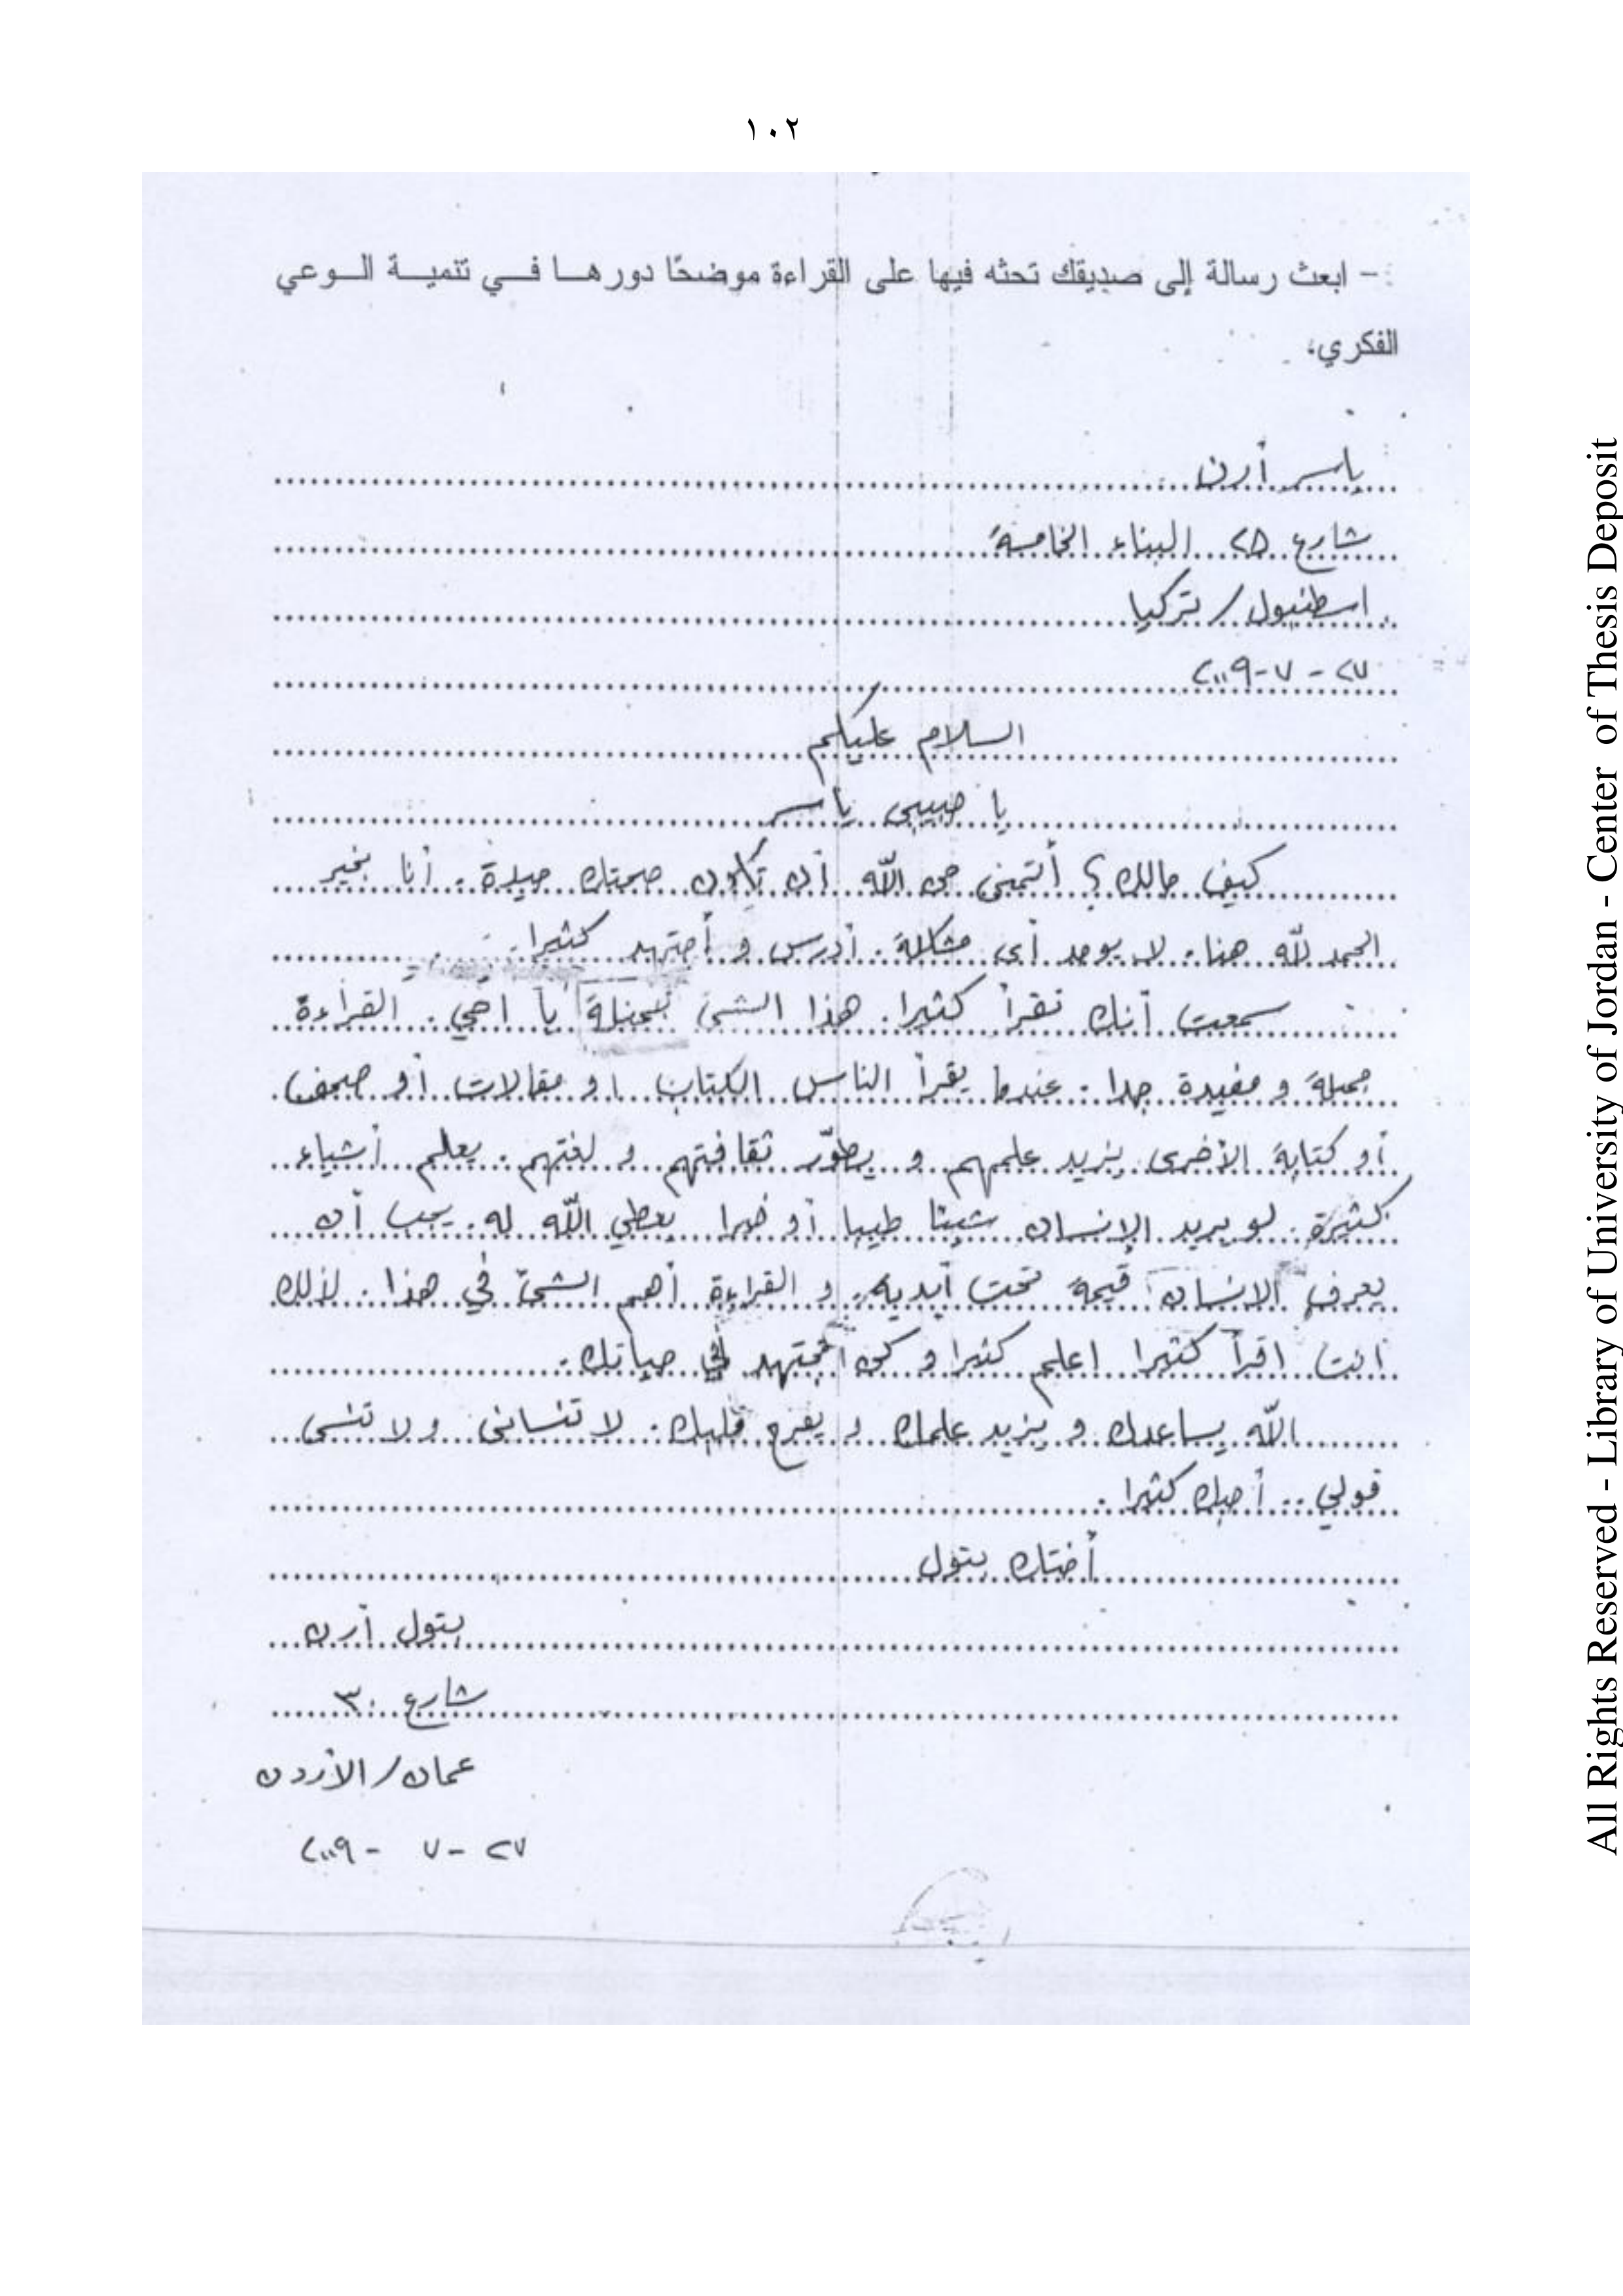 ١٠٢
- ابعث رسالة إلى صديقك تحثه فيها على القراءة موضحًا دورها في تنمية الوعي
الفكري،
ياسر أرن
شارع ٢٥ البناء الخامسة
اسطنبول / تركيا
٢٧ - ٧ - ٢٠٠٩
السلام عليكم
يا حبيبي ياسر
كيف حالك ؟ أتمنى من الله أن تكون صحتك جيدة . أنا بخير
الحمد لله هنا . لا يوجد أى مشكلة . أدرس و أجتهد كثيرا .
سمعت أنك تقرأ كثيرا . هذا الشئ يا اخي . القراءة
جميلة و مفيدة جدا . عندما يقرأ الناس الكتاب او مقالات أو صحف
أو كتابة الأخرى يزيد علمهم و يطوّر ثقافتهم و لغتهم . يعلم أشياء
كثيرة . لو يريد الإنسان شيئا طيبا أو خيرا يعطي الله له . يجب أن
يعرف الانسان قيمة تحت أيديه . و القراءة أهم الشئ في هذا . لذلك
انت اقرأ كثيرا اعلم كثيرا و كن في حياتك .
الله يساعدك و يزيد علمك و يفرح قلبك . لا تنسانى ولا تنسى
قولي .. أحبك كثيرا .
أختك بتول
بتول أرن
شارع ٣٠
عمان / الأردن
٢٧ - ٧ - ٢٠٠٩
All Rights Reserved - Library of University of Jordan - Center of Thesis Deposit